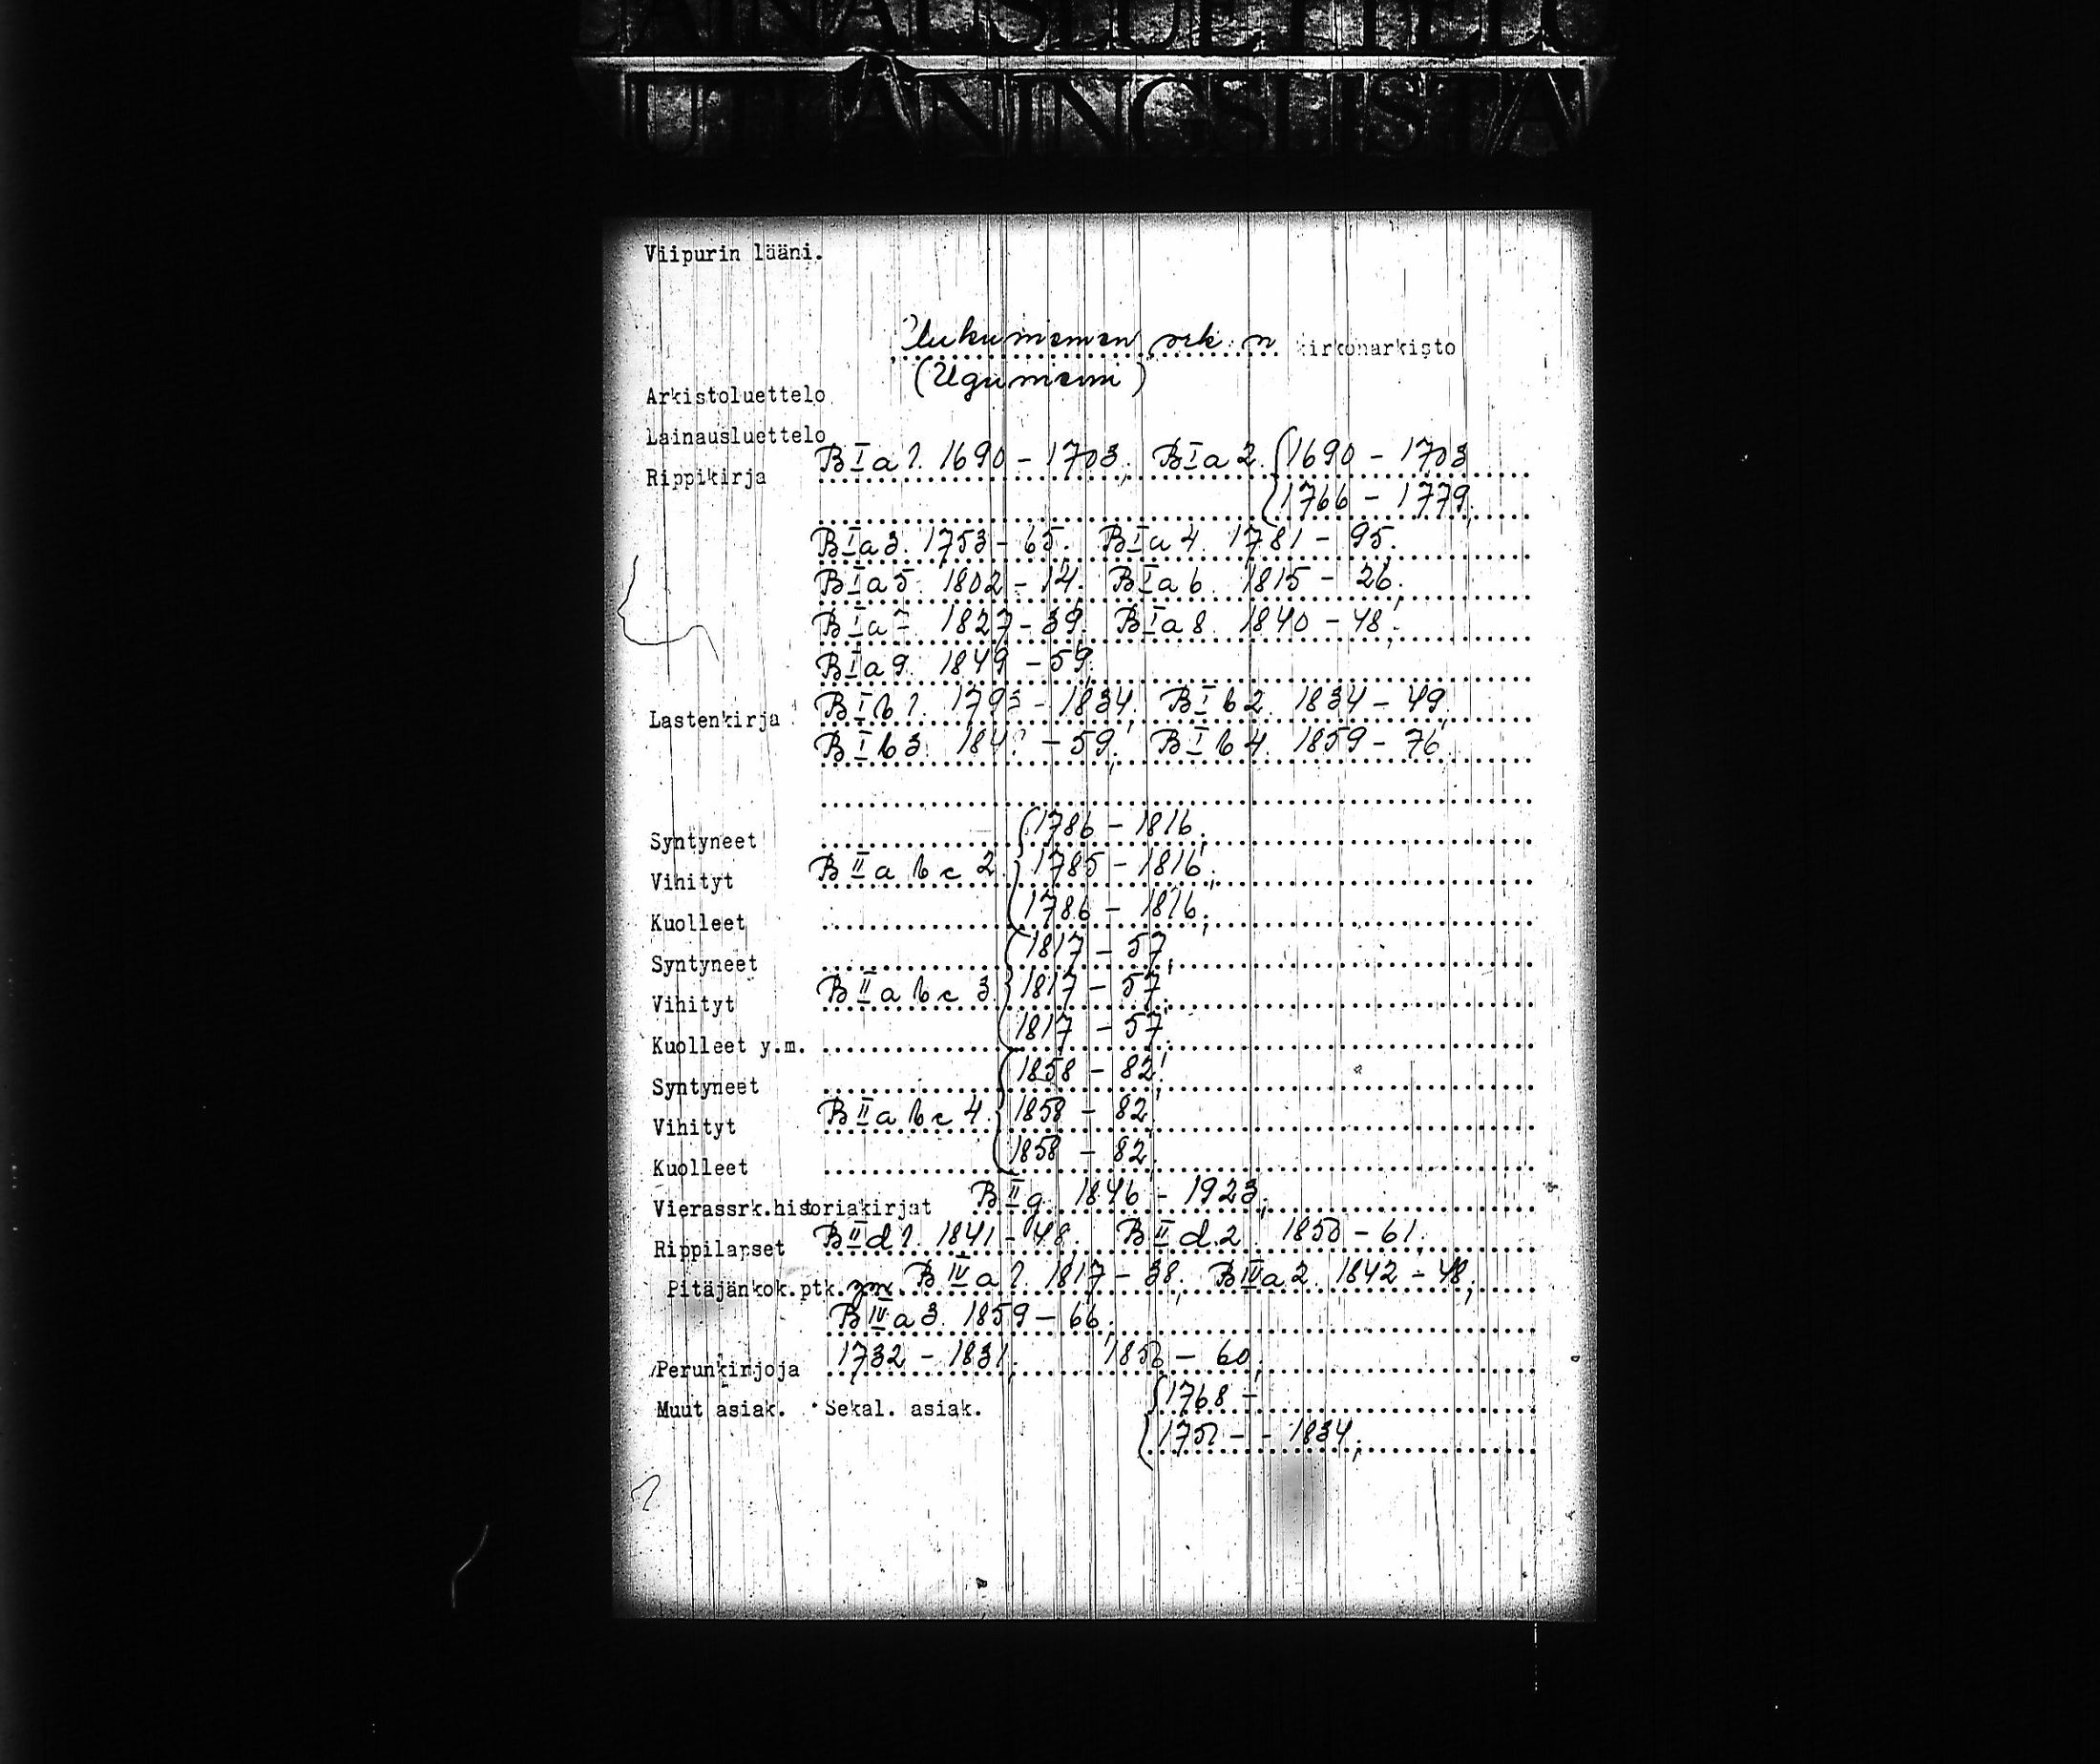 LAINAUSLUETTELO
UTLÅNINGSLISTA
Viipurin lääni.
Uukuniemen srk:n kirkonarkisto
(Uguniemi)
Arkistoluettelo
Lainausluettelo
Rippikirja B I a 1. 1690 - 1703; B I a 2. { 1690 - 1703
1766 - 1779;
B I a 3. 1753 - 65. B I a 4. 1781 - 95.
B I a 5. 1802 - 14. B I a 6. 1815 - 26.
B I a 7. 1827 - 39. B I a 8. 1840 - 48;
B I a 9. 1849 - 59.
Lastenkirja B I b 1. 1793 - 1834. B I b 2. 1834 - 49.
B I b 3. - 59; B I b 4. 1859 - 76.
Syntyneet { 1786 - 1816;
Vihityt B II a b c 2. 1785 - 1816;
Kuolleet 1786 - 1816;
Syntyneet { 1817 - 57;
Vihityt B II a b c 3. 1817 - 57;
Kuolleet y.m. 1817 - 57.
Syntyneet { 1858 - 82;
Vihityt B II a b c 4. 1858 - 82.
Kuolleet 1858 - 82.
Vierassrk.historiakirjat B II g. 1846 - 1923;
Rippilapset B II d 1. 1841 - 48. B II d.2. 1850 - 61.
Pitäjänkok.ptk. ym. B IV a 1. 1817 - 38; B IV a 2. 1842 - 48;
B IV a 3. 1859 - 66;
Perunkirjoja 1732 - 1831; - 60;
Muut asiak. Sekal. asiak. { 1768 -
- - 1834;